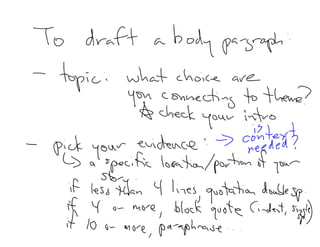 To draft a body paragraph:
- topic: what choice are
you connecting to theme?
☆ check your intro
- pick your evidence: → is context needed?
↳ a specific location/portion of your
story
if less than 4 lines, quotation double sp.
if 4 or more, block quote (indent, single sp)
if 10 or more, paraphrase...